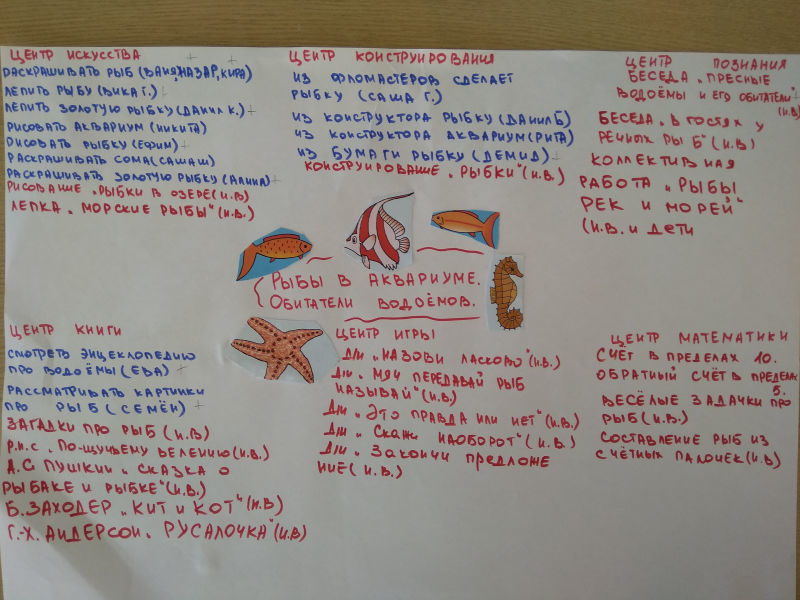 ЦЕНТР ИСКУССТВА
РАСКРАШИВАТЬ РЫБ (ВАНЯ, НАЗАР, КИРА)
ЛЕПИТЬ РЫБУ (ВИКА Г.)
ЛЕПИТЬ ЗОЛОТУЮ РЫБКУ (ДАНИЛ К.)
РИСОВАТЬ АКВАРИУМ (НИКИТА)
РИСОВАТЬ РЫБКУ (ЕФИМ)
РАСКРАШИВАТЬ СОМА (САШАШ)
РАСКРАШИВАТЬ ЗОЛОТУЮ РЫБКУ (АЛИНА)
РИСОВАНИЕ „РЫБКИ В ОЗЕРЕ (И.В)
ЛЕПКА „МОРСКИЕ РЫБЫ" (И.В.)
ЦЕНТР КОНСТРУИРОВАНИЯ
ИЗ ФЛОМАСТЕРОВ СДЕЛАЕТ
РЫБКУ (САША Г.)
ИЗ КОНСТРУКТОРА РЫБКУ (ДАНИЛ Б)
ИЗ КОНСТРУКТОРА АКВАРИУМ (РИТА)
ИЗ БУМАГИ РЫБКУ (ДЕМИД)
КОНСТРУИРОВАНИЕ „РЫБКИ" (И.В.)
ЦЕНТР ПОЗНАНИЯ
БЕСЕДА „ПРЕСНЫЕ
ВОДОЁМЫ И ЕГО ОБИТАТЕЛИ"
(И.В)
БЕСЕДА „В ГОСТЯХ У
РЕЧНЫХ РЫБ" (И.В)
КОЛЛЕКТИВНАЯ
РАБОТА „РЫБЫ
РЕК И МОРЕЙ"
(И.В. И ДЕТИ
РЫБЫ В АКВАРИУМЕ.
ОБИТАТЕЛИ ВОДОЁМОВ.
ЦЕНТР КНИГИ
СМОТРЕТЬ ЭНЦЕКЛОПЕДИЮ
ПРО ВОДОЁМЫ (ЕВА)
РАССМАТРИВАТЬ КАРТИНКИ
ПРО РЫБ (СЕМЁН)
ЗАГАДКИ ПРО РЫБ (И.В)
Р.Н.С. „ПО-ЩУЧЬЕМУ ВЕЛЕНИЮ (И.В.)
А.С ПУШКИН „СКАЗКА О
РЫБАКЕ И РЫБКЕ" (И.В.)
Б.ЗАХОДЕР „КИТ И КОТ" (И.В)
Г.-Х. АНДЕРСОН „РУСАЛОЧКА" (И.В)
ЦЕНТР ИГРЫ
Д/И „НАЗОВИ ЛАСКОВО" (И.В.)
Д/И „МЯЧ ПЕРЕДАВАЙ РЫБ
НАЗЫВАЙ" (И.В)
Д/И „ЭТО ПРАВДА ИЛИ НЕТ" (И.В)
Д/И „СКАЖИ НАОБОРОТ" (И.В.)
Д/И „ЗАКОНЧИ ПРЕДЛОЖЕ
НИЕ (И.В.)
ЦЕНТР МАТЕМАТИКИ
СЧЁТ В ПРЕДЕЛАХ 10.
ОБРАТНЫЙ СЧЁТ В ПРЕДЕЛАХ
5.
ВЕСЁЛЫЕ ЗАДАЧКИ ПРО
РЫБ (И.В.)
СОСТАВЛЕНИЕ РЫБ ИЗ
СЧЁТНЫХ ПАЛОЧЕК (И.В)